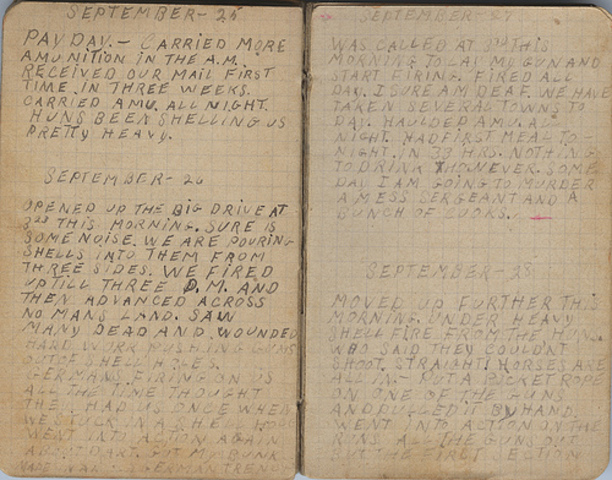 SEPTEMBER - 25
PAY DAY. - CARRIED MORE
AMUNITION IN THE A.M.
RECEIVED OUR MAIL FIRST
TIME IN THREE WEEKS.
CARRIED AMU. ALL NIGHT.
HUNS BEEN SHELLING US
PRETTY HEAVY.
SEPTEMBER - 26
OPENED UP THE BIG DRIVE AT
THIS MORNING. SURE IS
SOME NOISE. WE ARE POURING
SHELLS INTO THEM FROM
THREE SIDES. WE FIRED
UPTILL THREE P.M. AND
THEN ADVANCED ACROSS
NO MANS LAND. SAW
MANY DEAD AND WOUNDED
HARD WORK PUSHING GUNS
OUT OF SHELL HOLES.
GERMANS FIRING ON US
ALL THE TIME THOUGHT
THEY HAD US ONCE WHEN
WE STUCK IN A SHELL HOLE
WENT INTO ACTION AGAIN
ABOUT DARK. GOT MY BUNK
GERMAN TRENCH
SEPTEMBER - 27
WAS CALLED AT THIS
MORNING TO LAY MY GUN AND
START FIRING. FIRED ALL
DAY. I SURE AM DEAF. WE HAVE
TAKEN SEVERAL TOWNS TO
DAY. HAULDED AMU. ALL
NIGHT. HAD FIRST MEAL TO-
NIGHT. IN 33 HRS. NOTHING
TO DRINK HOWEVER. SOME
DAY I AM GOING TO MURDER
A MESS SERGEANT AND A
BUNCH OF COOKS.
SEPTEMBER - 28
MOVED UP FURTHER THIS
MORNING. UNDER HEAVY
SHELL FIRE FROM THE HUNS.
WHO SAID THEY COULDNT
SHOOT STRAIGHT! HORSES ARE
ALL IN. - PUT A PICKET ROPE
ON ONE OF THE GUNS
AND PULLED IT BY HAND.
WENT INTO ACTION ON THE
RUNS ALL THE GUNS OUT
BUT THE FIRST SECTION